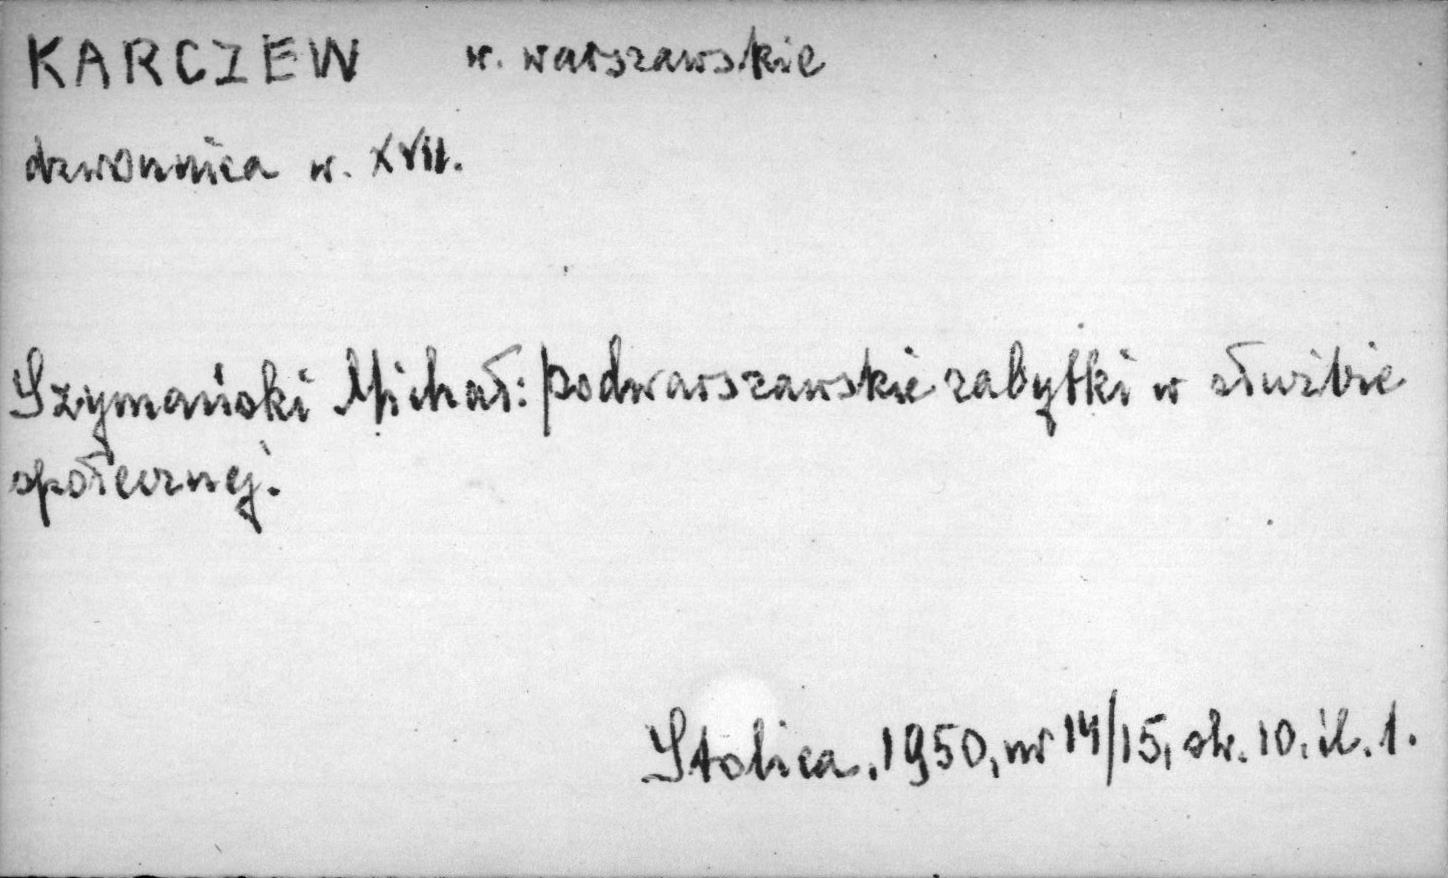 KARCZEW w. warszawskie
dzwonnica w. XVII.
Szymański Michał: podwarszawskie zabytki w służbie
społecznej.
Stolica. 1950, nr 14/15, str. 10. il. 1.